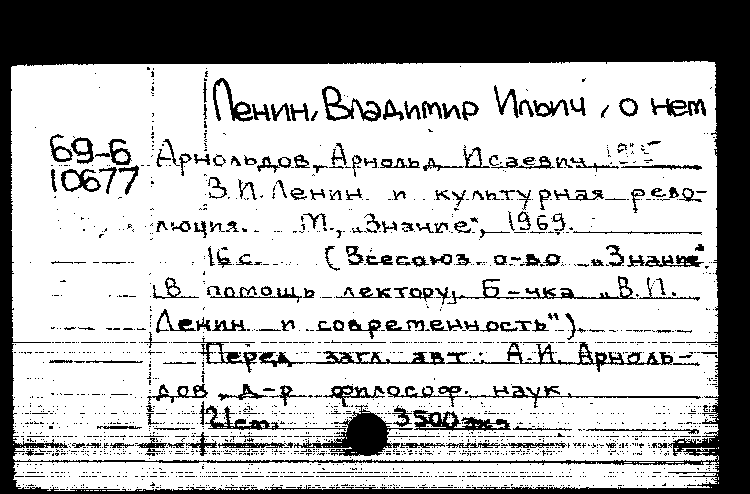 Ленин, Владимир Ильич, о нем
69-6 Арнольдов, Арнольд Исаевич, 1915
10677 В.И. Ленин и культурная рево-
люция. М., „Знание", 1969.
16 с. (Всесоюз. о-во „Знание".
(В помощь лектору). Б-чка „В.И.
Ленин и современность").
Перед загл. авт.: А.И. Арноль-
дов, д-р философ. наук.
21 см. 3500 экз.